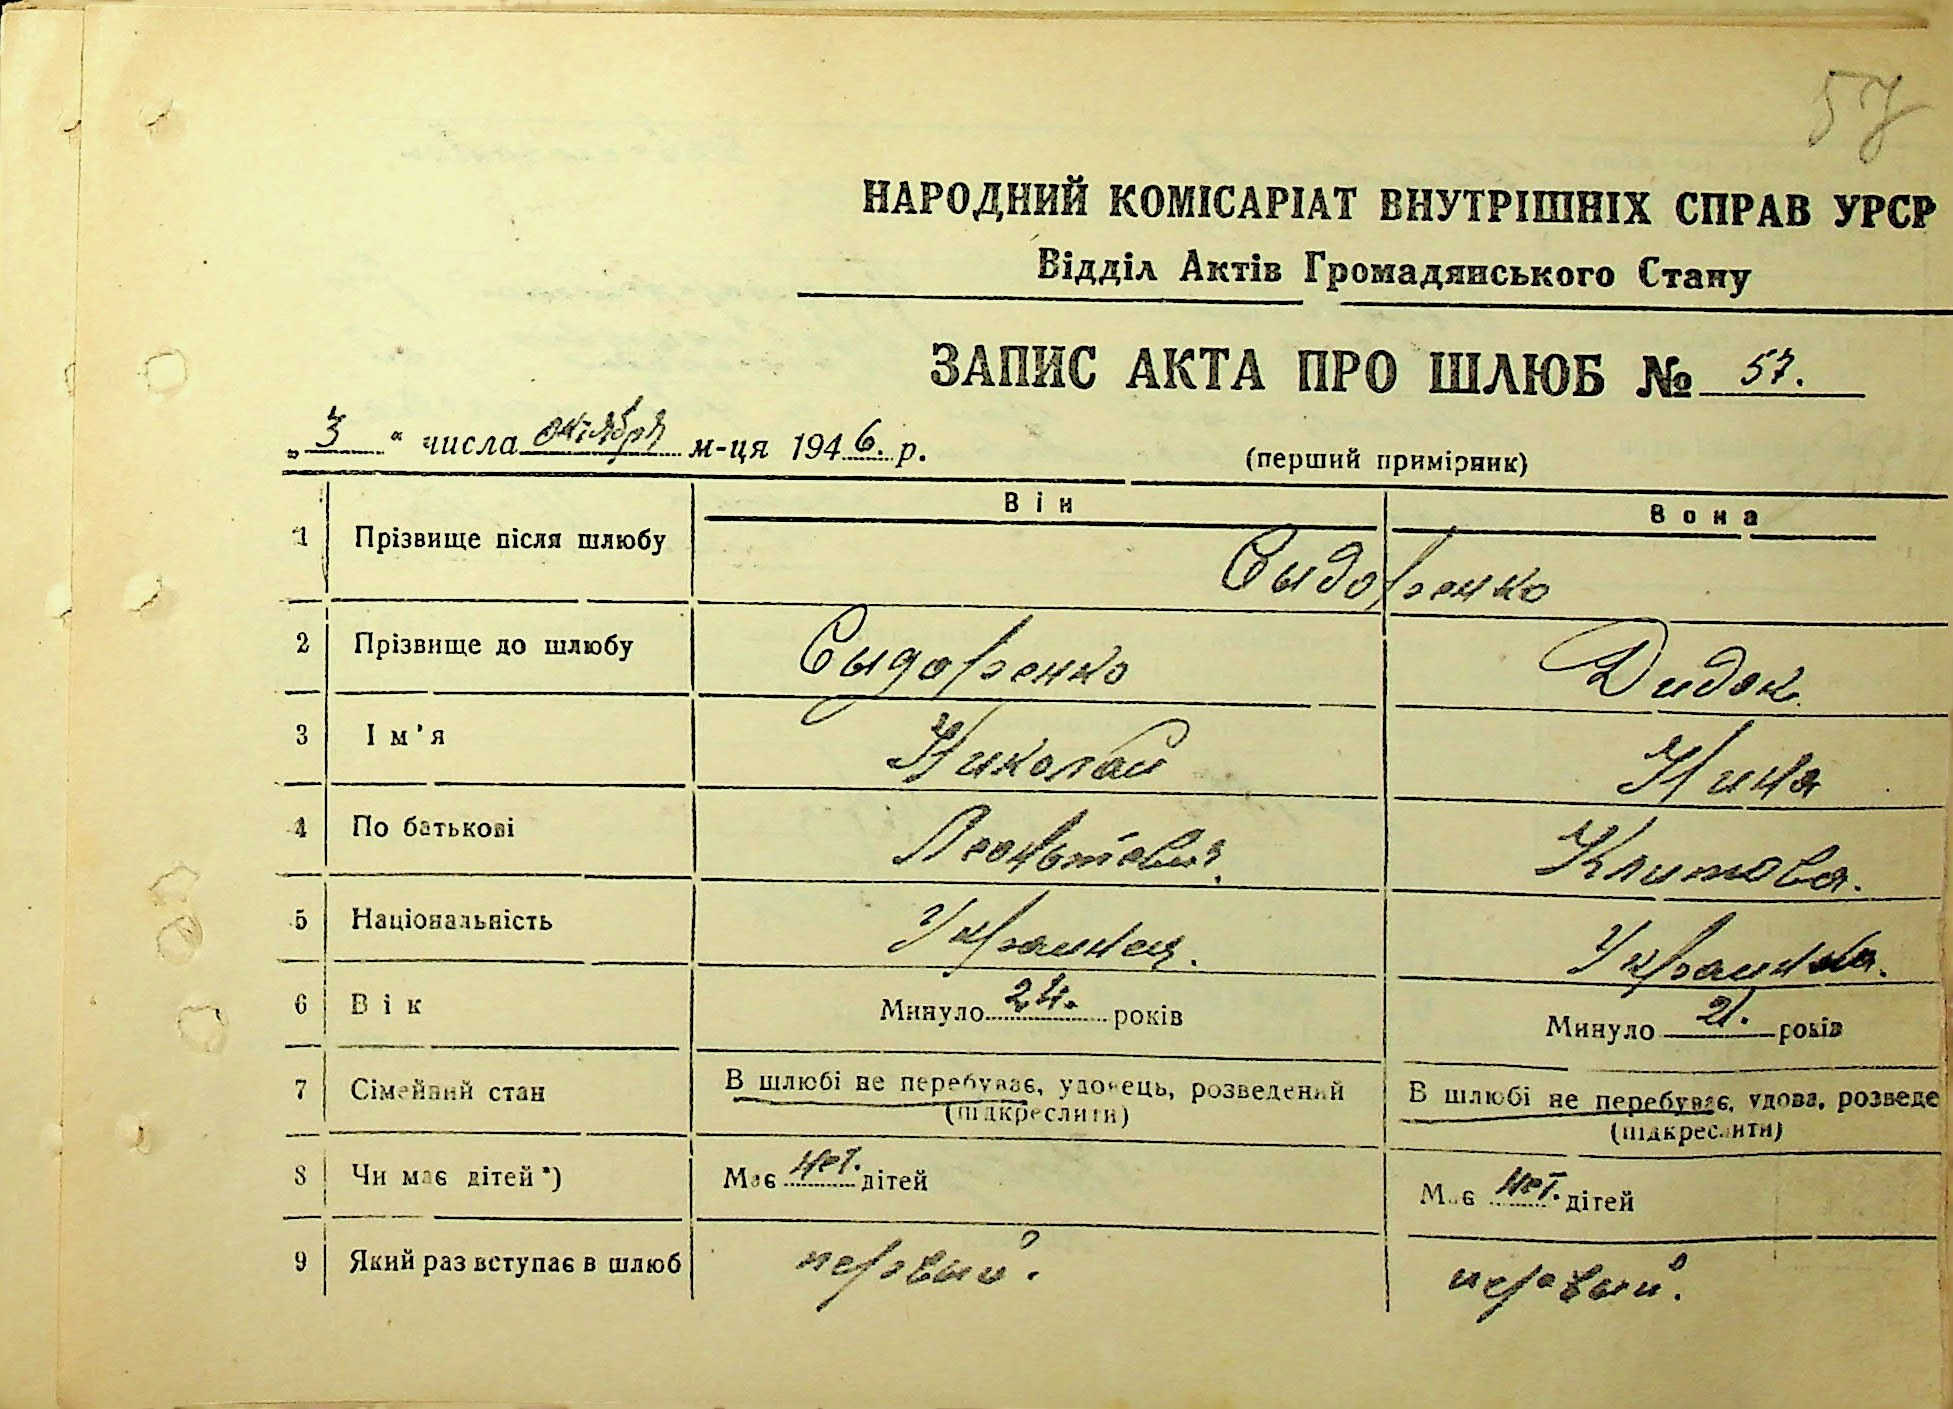 57
НАРОДНИЙ КОМІСАРІАТ ВНУТРІШНІХ СПРАВ УРСР
Відділ Актів Громадянського Стану
ЗАПИС АКТА ПРО ШЛЮБ № 57.
„3“ числа октября м-ця 1946. р.
(перший примірник)
Він Вона
1 Прізвище після шлюбу Сыдоренко
2 Прізвище до шлюбу Сыдоренко Дидок.
3 Ім'я Николай Нина
4 По батькові Леонтьевич. Климовна.
5 Національність Украинец. Украинка.
6 Вік Минуло 24. років Минуло 21. років
7 Сімейний стан В шлюбі не перебуває, удовець, розведений В шлюбі не перебуває, удова, розведе
(підкреслити) (підкреслити)
8 Чи має дітей*) Має нет. дітей Має нет. дітей
9 Який раз вступає в шлюб первый. первый.